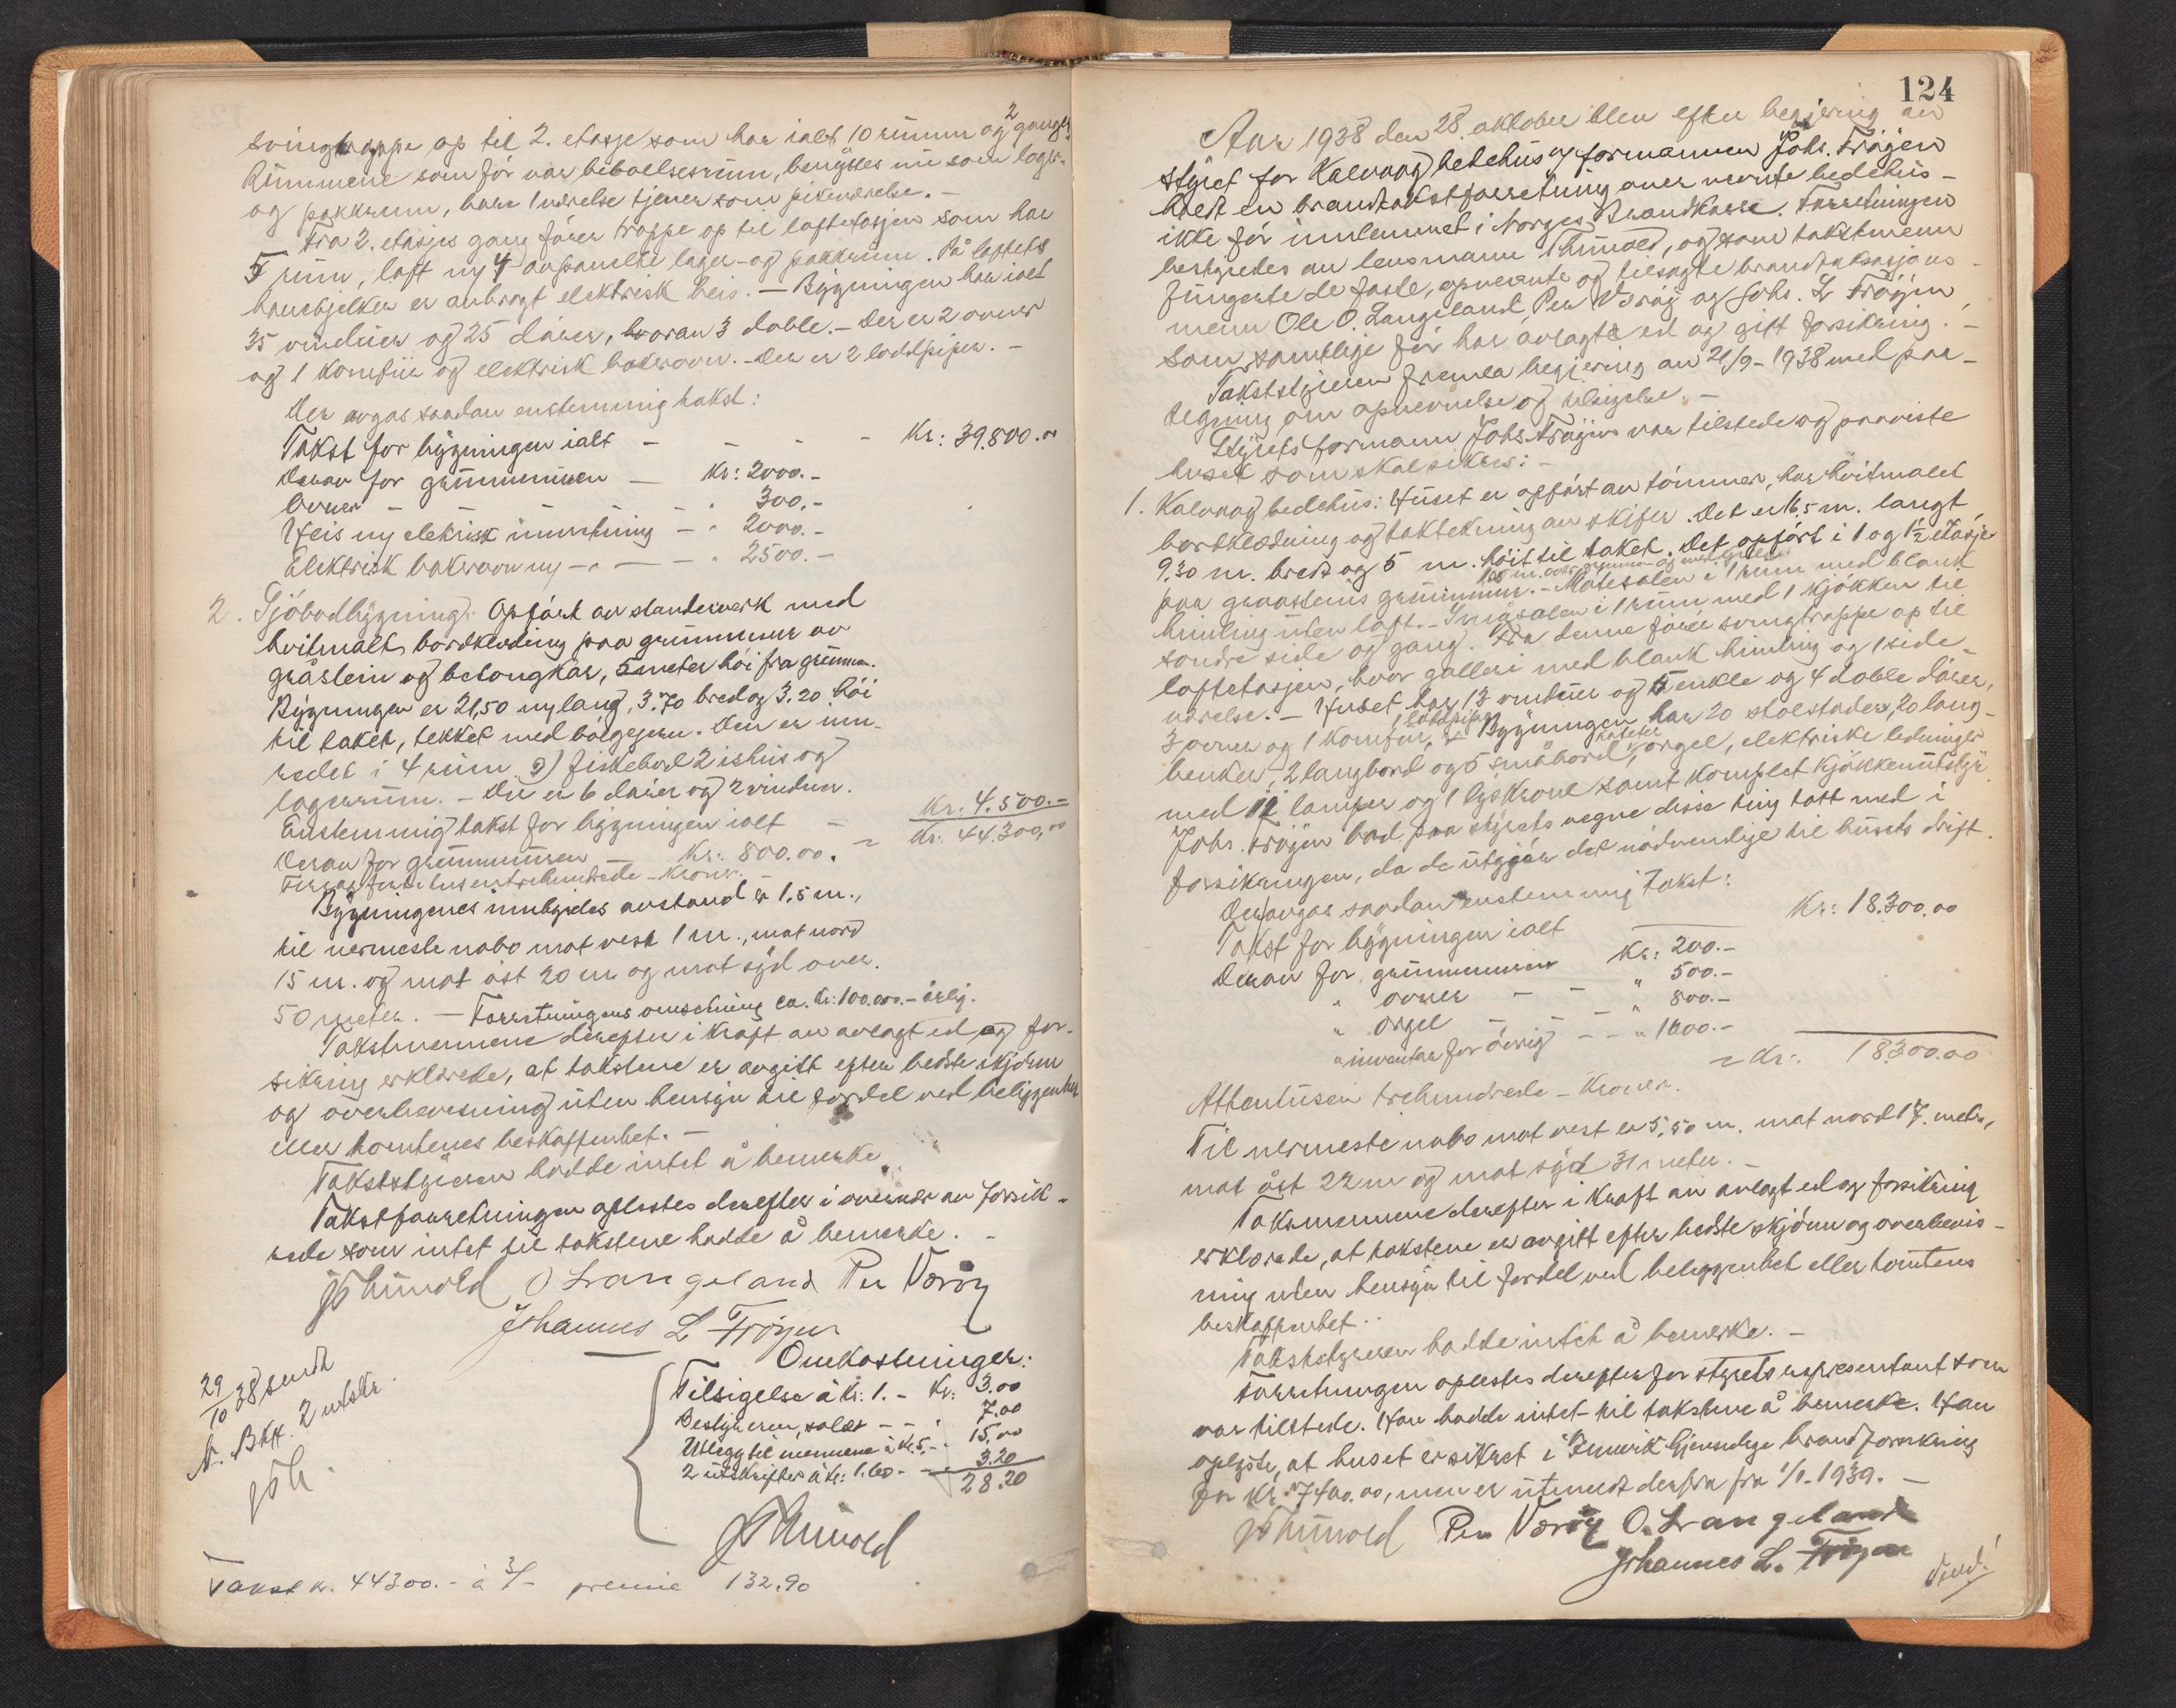 svingtrappe op til 2. etasje som har ialt 10 rumm og 2 ganger.
Rummene som før var beboelsesrum, benyttes nu som lager-
og pakkrum, bare 1 værelse tjener som pikeværelse. -
Fra 2. etasjes gang fører trappe op til loftetasjen som har
5 rum, loft ny 4 avpanelte lager- og pakkrum. På loftets
hanebjelker er anbragt elektrisk heis. - Bygningen har ialt
35 vinduer og 25 dører, hvorav 3 doble. - Der er 2 ovner
og 1 komfur og elektrisk bakerovn. - Der er 2 loddpiper. -
Der avgas saadan enstemmig takst:
Takst for bygningen ialt - - - - Kr: 39.800.00
Derav for grunnmuren - Kr: 2000.-
Ovner - - - - - " 300.-
Heis ny elektrisk innretning - " 2000.-
Elektrisk bakerovn ny - " - - " 2500.-
2. Sjøbodbygning: Opført av standerverk med
hvitmalt bordkledning paa grunnmur av
gråstein og betongkar, 5 meter høi fra grunnen.
Bygningen er 21,50 m lang, 3.70 bred og 3.20 høi
til taket, tekket med bølgejern. Den er inn-
redet i 4 rum 2) fiskebod 2 ishus og
lagerrum. - Der er 6 dører og 2 vinduer.
Enstemmig takst for bygningen ialt - Kr: 4.500.-
Derav for grunnmuren - Kr: 800.00. = Kr: 44.300,00
Firtifiretusentrehundrede - Kroner. -
Bygningenes innbyrdes avstand er 1,5 m.,
til nermeste nabo mot vest 1 m., mot nord
15 m. og mot øst 20 m og mot syd over
50 meter. - Forretningens omsetning ca. Kr: 100.000.- årlig.
Takstmennene derefter i kraft av avlagt ed og for-
sikring erklærede, at takstene er avgitt efter bedste skjønn
og overbevisning uten hensyn til fordel ved beliggenhet
eller tomtenes beskaffenhet. -
Takststyreren hadde intet å bemerke
Takstforretningen oplestes derefter i overvær av forsik-
rede som intet til takstene hadde å bemerke. -
O Langeland Per Værøy
Johannes L Frøyen
29/10 38 sendt
N. Bkk. 2 utskr.
Omkostninger:
Tilsigelse à Kr: 1.- Kr: 3.00
Bestyreren, salær - - " 7.00
Utlegg til mennene à Kr. 5,- " 15,00
2 utskrifter à Kr: 1.60 - - 3.20
28.20
Takst kr. 44300.- à 3/- premie 132.90
124
Aar 1938 den 28. oktober blev efter begjering av
styret for Kalvaag bedehus v/ formannen Johs. Frøyen
holdt en brandtakstforretning over nevnte bedehus -
ikke før innlemmet i Norges Brandkasse. Forretningen
bestyredes av lensmann Thunold, og som takstmenn
fungerte de faste, opnevnte og tilsagte brandtaksasjons-
menn Ole O. Langeland Per Værøy og Johs. L Frøyen,
som samtlige før har avlagt ed og gitt forsikring. -
Takststyreren fremla begjering av 21/9-1938 med paa-
tegning om opnevnelse og tilsigelse. -
Styrets formann Johs. Frøyen var tilstede og paaviste
huset som skal sikres: -
1. Kalvaag bedehus: Huset er opført av tømmer, har hvitmalet
bordklædning og taktekning av skifer. Det er 16,5 m. langt
9,30 m. bredt og 5 m. høit til taket. Det opført i 1 og 1½ etasje
paa graasteins grunnmur. - Møtesalen i 1 rum med blank
himling uten loft. - Småsalen i 1 rum med 1 kjøkken til
søndre side og gang. Fra denne fører svingtrappe op til
loftetasjen, hvor galleri med blank himling og 1 side-
værelse. - Huset har 13 vinduer og 5 enkle og 4 doble dører,
3 ovner og 1 komfur, 1 loddpipe. Bygningen har 20 stolstader, 20 lang-
benker, 2 langbord og 5 småbord, orgel, elektriske ledninger
med 12 lamper og 1 lyskrone samt komplet kjøkkenutstyr.
Johs. Frøyen bad paa styrets vegne disse ting tatt med i
forsikringen, da de utgjør det nødvendige til husets drift.
Der avgas saadan enstemmig takst:
Takst for bygningen ialt Kr: 18.300.00
Derav for grunnmuren Kr: 200.-
" ovner - - " 500.-
" orgel - - " 800.-
" inventar for øvrig - - " 1600.-
= Kr: 18.300.00
Attentusen trehundrede - Kroner.
Til nermeste nabo mot vest er 5,50 m. mot nord 17. meter,
mot øst 22 m og mot syd 31 meter. -
Taksmennene derefter i kraft av avlagt ed og forsikring
erklærede, at takstene er avgitt efter bedste skjønn og overbevis-
ning uten hensyn til fordel ved beliggenhet eller tomtens
beskaffenhet.
Takststyreren hadde intet å bemerke. -
Forretningen oplestes derefter for styrets representant som
var tilstede. Han hadde intet til takstene å bemerke. Han
oplyste, at huset er sikret i Innvik gjensidige brandforsikring
for Kr 7400.00, men er utmeldt derfra fra 1/1-1939. -
Per Værøy O. Langeland
Johannes L. Frøyen